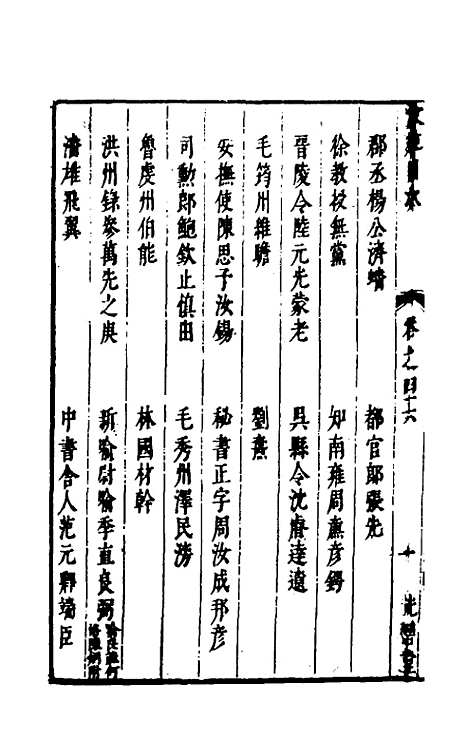 卷之四十六
十
郡丞楊公濟蟠
都官郎張先
徐教授無黨
知南雍周燾彥鍔
晋陵令陸元光蒙老
吳縣令沈睿達遼
毛筠州維瞻
劉燾
安撫使陳思予汝錫
秘書正字周汝成邦彥
司勳郎鮑欽止慎由
毛秀州澤民滂
魯虔州伯能
林國材幹
洪州錄參萬先之庚
新喻尉喻季直良弼
潘雄飛翼
中書舍人范元釋端臣